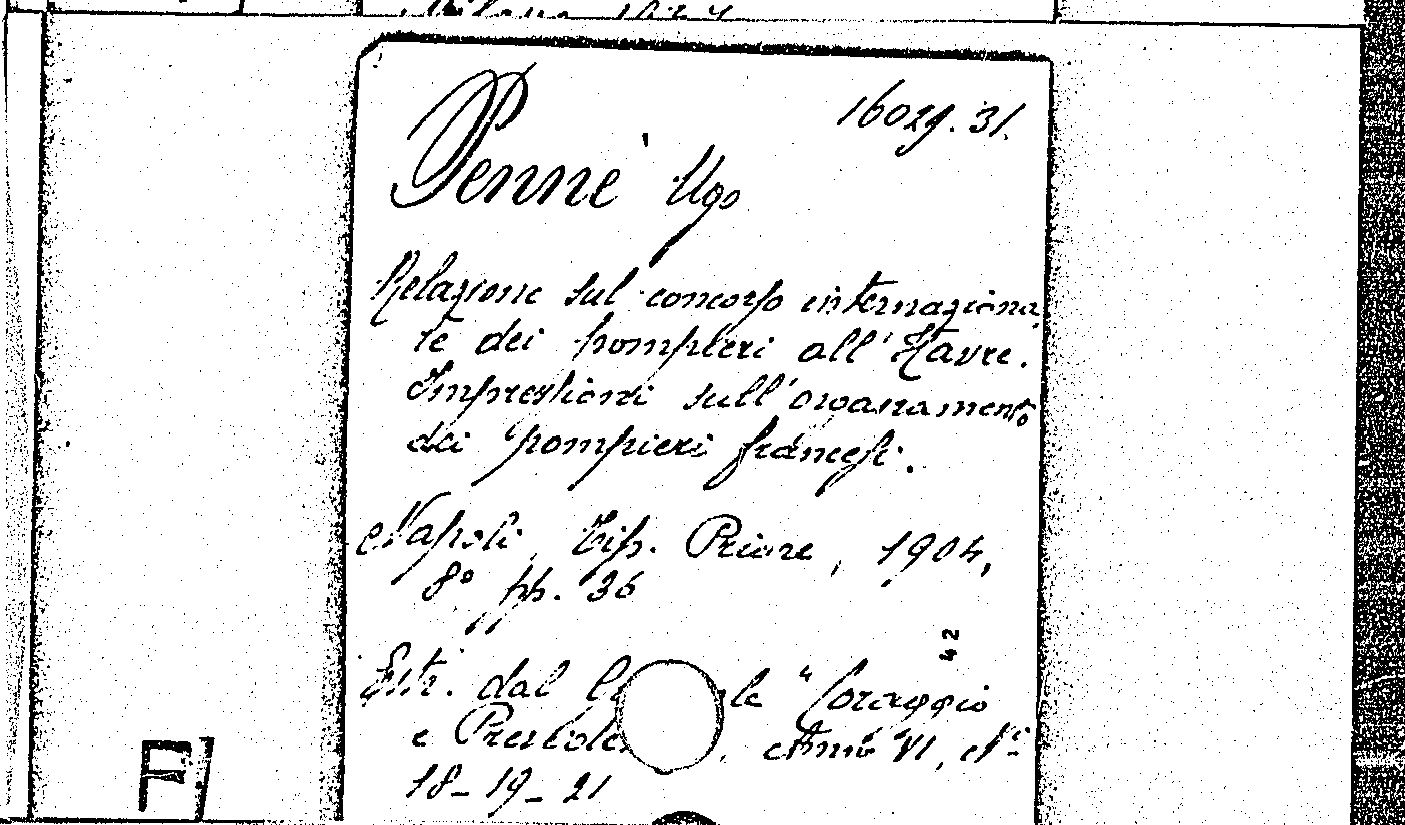 Milano 1927
16029.31.
Pennè Ugo
Relazione sul concorso internaziona
le dei pompieri all'Havre.
Impressioni sull'organamento
dei pompieri francesi.
Napoli, Tip. Priore, 1904,
8° pp. 36
42
Estr. dal le "Coraggio
e Anno VI, N°
18-19-21